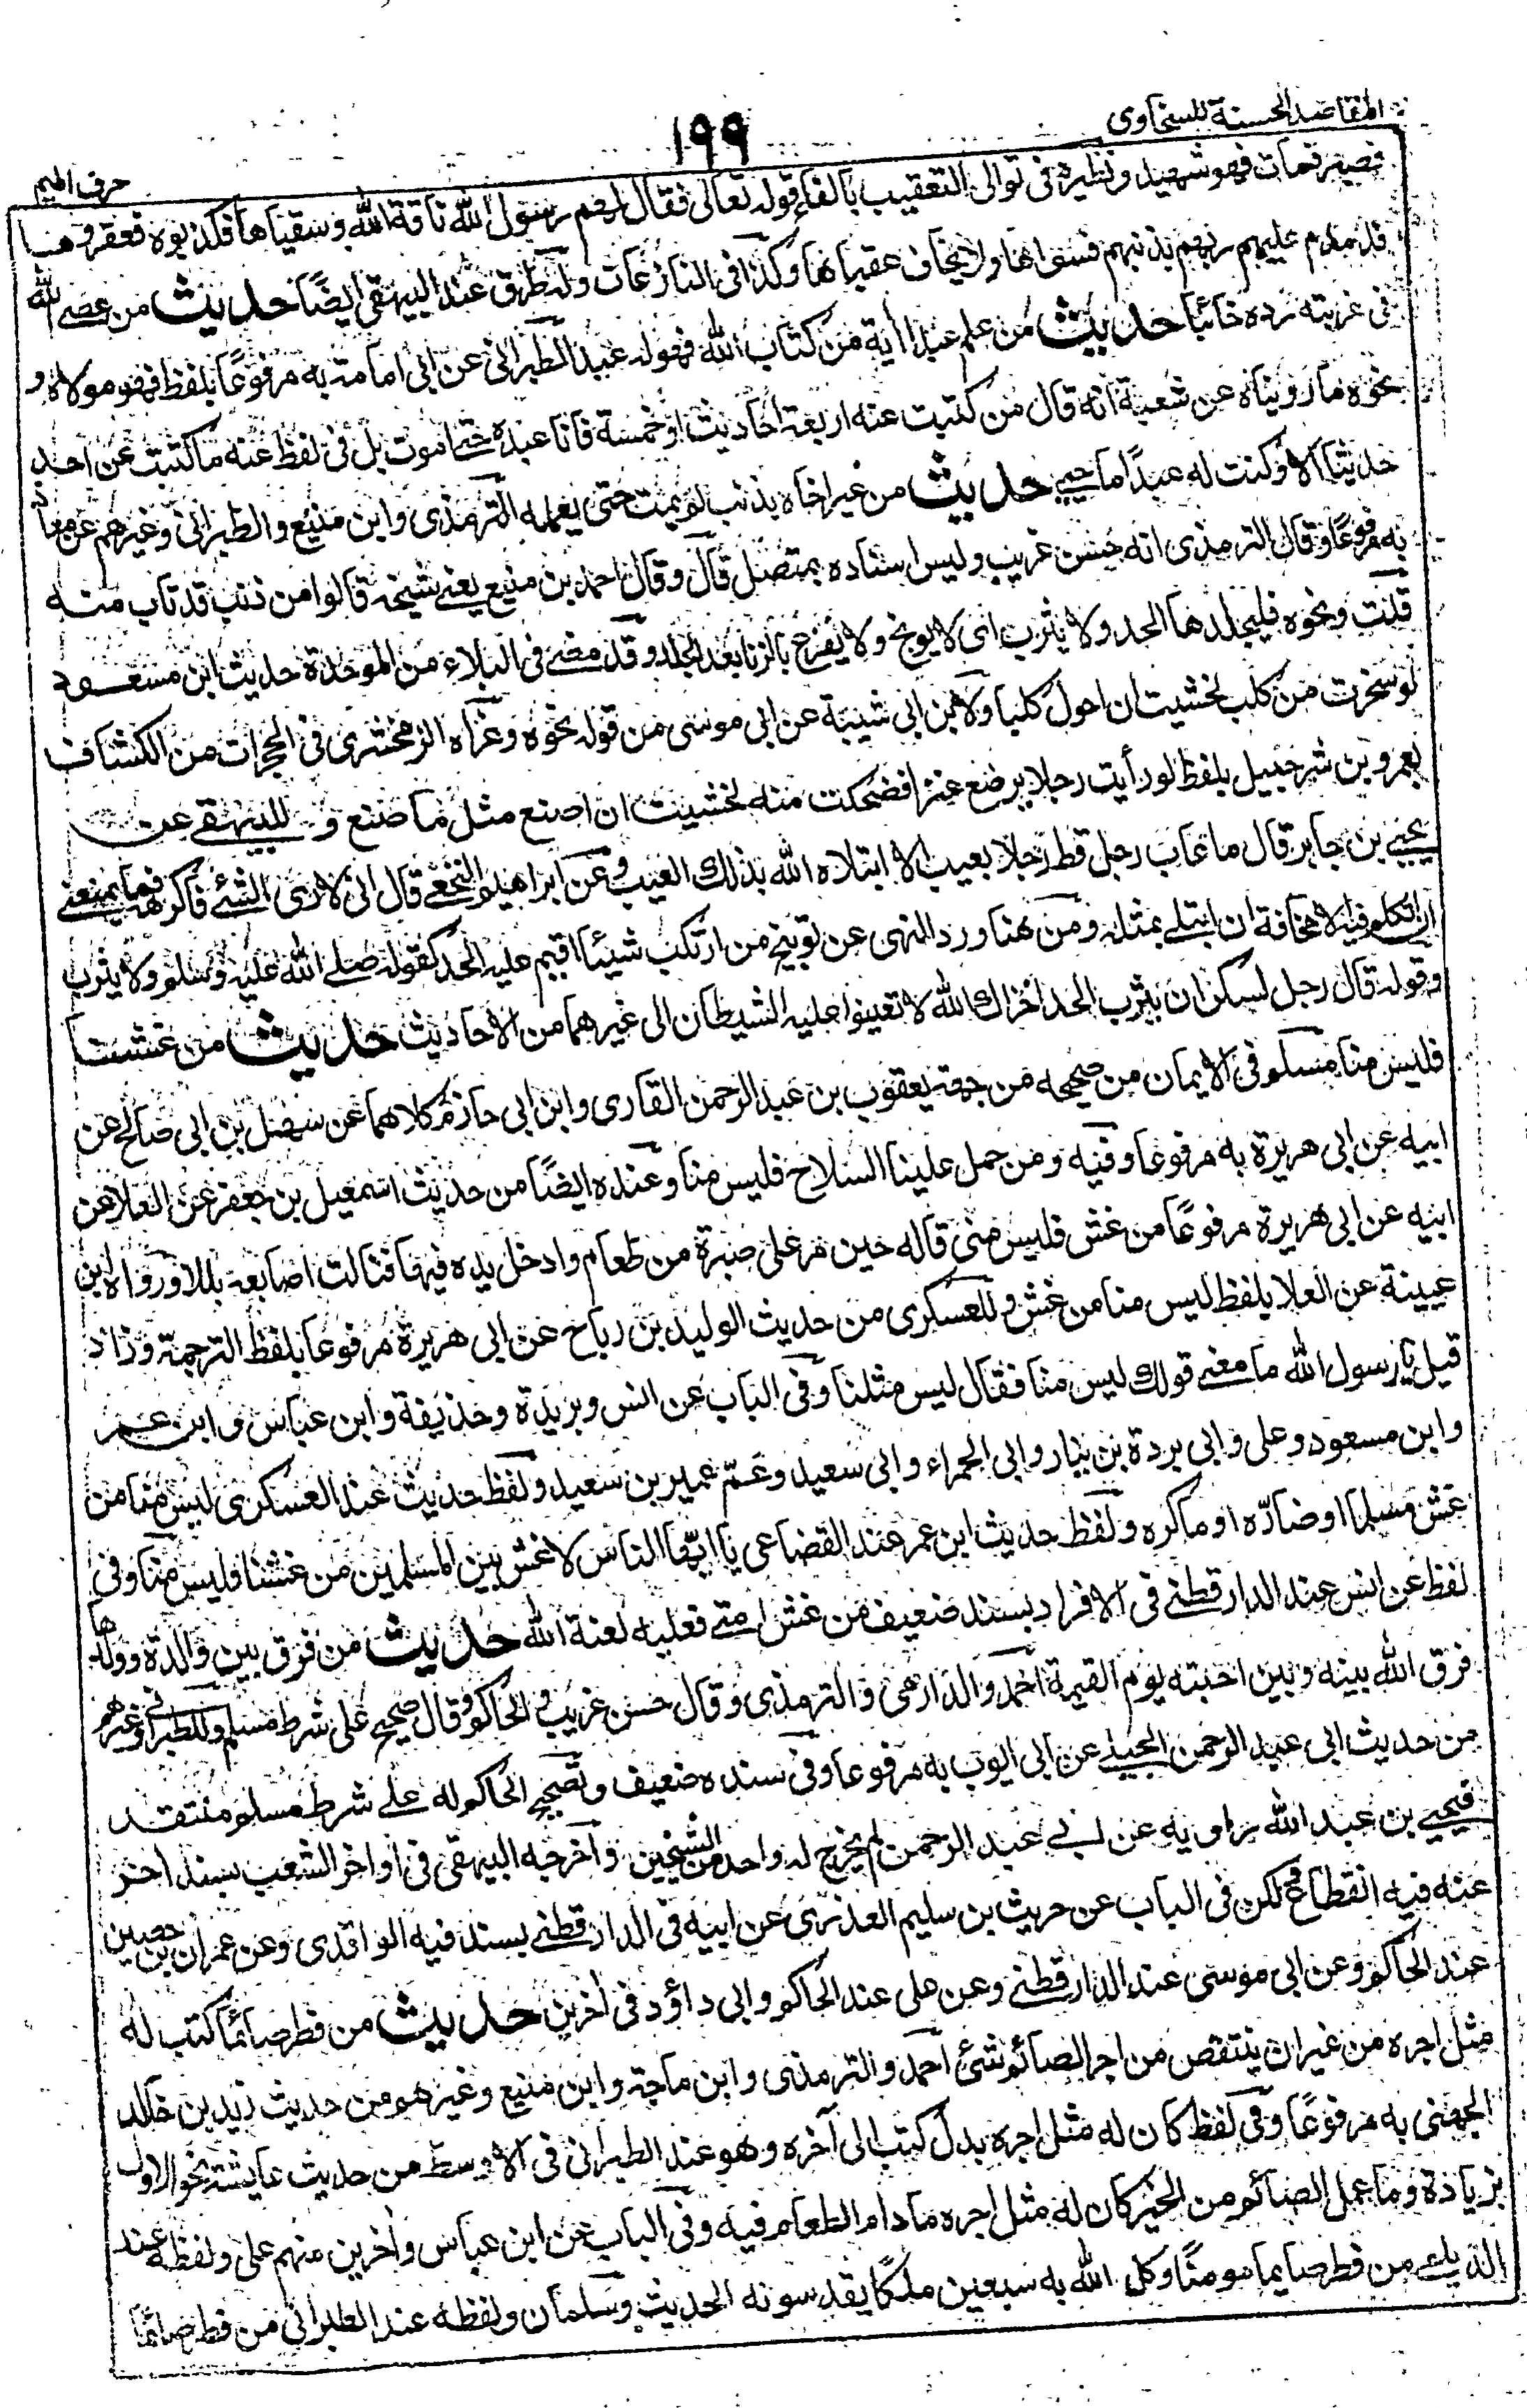 المقاصد الحسنة للسخاوى
١٩٩
حرف الميم
فصبر فمات فهو شهيد ونظيره فى توالى التعقيب بالفاء قوله تعالى فقال لهم رسول الله ناقة الله وسقياها فكذبوه فعقروها
فدمدم عليهم ربهم بذنبهم فسواها ولا يخاف عقباها وكذا فى النازعات وله طرق عند البيهقى ايضًا حديث من عصى الله
فى غربته رده خائبا حديث من علم عبدا أية من كتاب الله فهو له عبد الطبرانى عن ابى امامة به مرفوعًا بلفظ فهو مولاه و
نحوه ما رويناه عن شعبة انه قال من كتبت عنه اربعة احاديث او خمسة فانا عبده حتى اموت بل فى لفظ عنه ما كتبت عن احد
حديثا الا وكنت له عبدًا ما حيى حديث من عير اخاه بذنب لم يمت حتى يعمله الترمذى وابن منيع والطبرانى وغيرهم عن معاذ
به مرفوعًا وقال الترمذى انه حسن غريب وليس اسناده بمتصل قال وقال احمد بن منيع يعنى شيخه قالوا من ذنب قد تاب منه
قلت ونحوه فليجلدها الحد ولا يثرب اى لا يوبخ ولا يقرع بالزنا بعد الجلد وقد مضى فى البلاء من الموحدة حديث ابن مسعود
لو سخرت من كلب لخشيت ان احول كلبا ولابن ابى شيبة عن ابى موسى من قوله نحوه وعزاه الزمخشرى فى الحجرات من الكشاف
لعمرو بن شرحبيل بلفظ لو رأيت رجلا يرضع عنزا فضحكت منه لخشيت ان اصنع مثل ما صنع و للبيهقى عن
يحيى بن جابر قال ما عاب رجل قط رجلا بعيب الا ابتلاه الله بذلك العيب وعن ابراهيم النخعى قال انى لارى الشئ فاكرهه فما يمنعنى
ان اتكلم فيه الا مخافة ان ابتلى بمثله ومن هنا ورد النهى عن توبيخ من ارتكب شيئا اقيم عليه الحد كقوله صلى الله عليه وسلم ولا يثرب
وقوله قال رجل لسكران بيثرب الحد اخزاك الله لا تعينوا عليه الشيطان الى غيرهما من الاحاديث حديث من غشنا
فليس منا مسلم فى الايمان من صحيحه من جهة يعقوب بن عبد الرحمن القارى وابن ابى حازم كلاهما عن سهل بن ابى صالح عن
ابيه عن ابى هريرة به مرفوعا وفيه ومن حمل علينا السلاح فليس منا وعنده ايضًا من حديث اسمعيل بن جعفر عن العلا عن
ابيه عن ابى هريرة مرفوعًا من غش فليس منى قاله حين مر على صبرة من طعام وادخل يده فيها فنالت اصابعه بللا ورواه ابن
عيينة عن العلا بلفظ ليس منا من غش وللعسكرى من حديث الوليد بن رباح عن ابى هريرة مرفوعا بلفظ الترجمة وزاد
قيل يا رسول الله ما معنى قولك ليس منا فقال ليس مثلنا وفى الباب عن انس وبريدة وحذيفة وابن عباس وابن عمر
وابن مسعود وعلى وابى بردة بن نيار وابى الحمراء وابى سعيد وعم عمير بن سعيد ولفظ حديث عند العسكرى ليس منا من
غش مسلما او ضارّه او ماكره ولفظ حديث ابن عمر عند القضاعى يا ايها الناس لا غش بين المسلمين من غشنا فليس منا وفى
لفظ عن انس عند الدارقطنى فى الافراد بسند ضعيف من غش امتى فعليه لعنة الله حديث من فرق بين والدة وولدها
فرق الله بينه وبين احبته يوم القيمة احمد والدارمى والترمذى وقال حسن غريب والحاكم وقال صحيح على شرط مسلم وللطبرانى وغيرهم
من حديث ابى عبد الرحمن الحبلى عن ابى ايوب به مرفوعا وفى سنده ضعيف وتصحيح الحاكم له على شرط مسلم منتقد
فيحيى بن عبد الله راويه عن ابى عبد الرحمن لم يخرج له واحد من الشيخين واخرجه البيهقى فى اواخر الشعب بسند اخر
عنه فيه انقطاع لكن فى الباب عن حريث بن سليم العذرى عن ابيه فى الدارقطنى بسند فيه الواقدى وعن عمران بن حصين
عند الحاكم وعن ابى موسى عند الدارقطنى وعن على عند الحاكم وابى داؤد فى اخرين حديث من فطر صائما كتب له
مثل اجره من غير ان ينتقص من اجر الصائم شئ احمد والترمذى وابن ماجة وابن منيع وغيرهم من حديث زيد بن خالد
الجهنى به مرفوعًا وفى لفظ كان له مثل اجره بدل كتب الى آخره وهو عند الطبرانى فى الاوسط من حديث عايشة نحو الاول
بزيادة وما عمل الصائم من الخير كان له مثل اجره ما دام الطعام فيه وفى الباب عن ابن عباس واخرين منهم على ولفظه عند
الديلمى من فطر صايما مومنًا وكل الله به سبعين ملكًا يقدسونه الحديث وسلمان ولفظه عند الطبرانى من فطر صائمًا